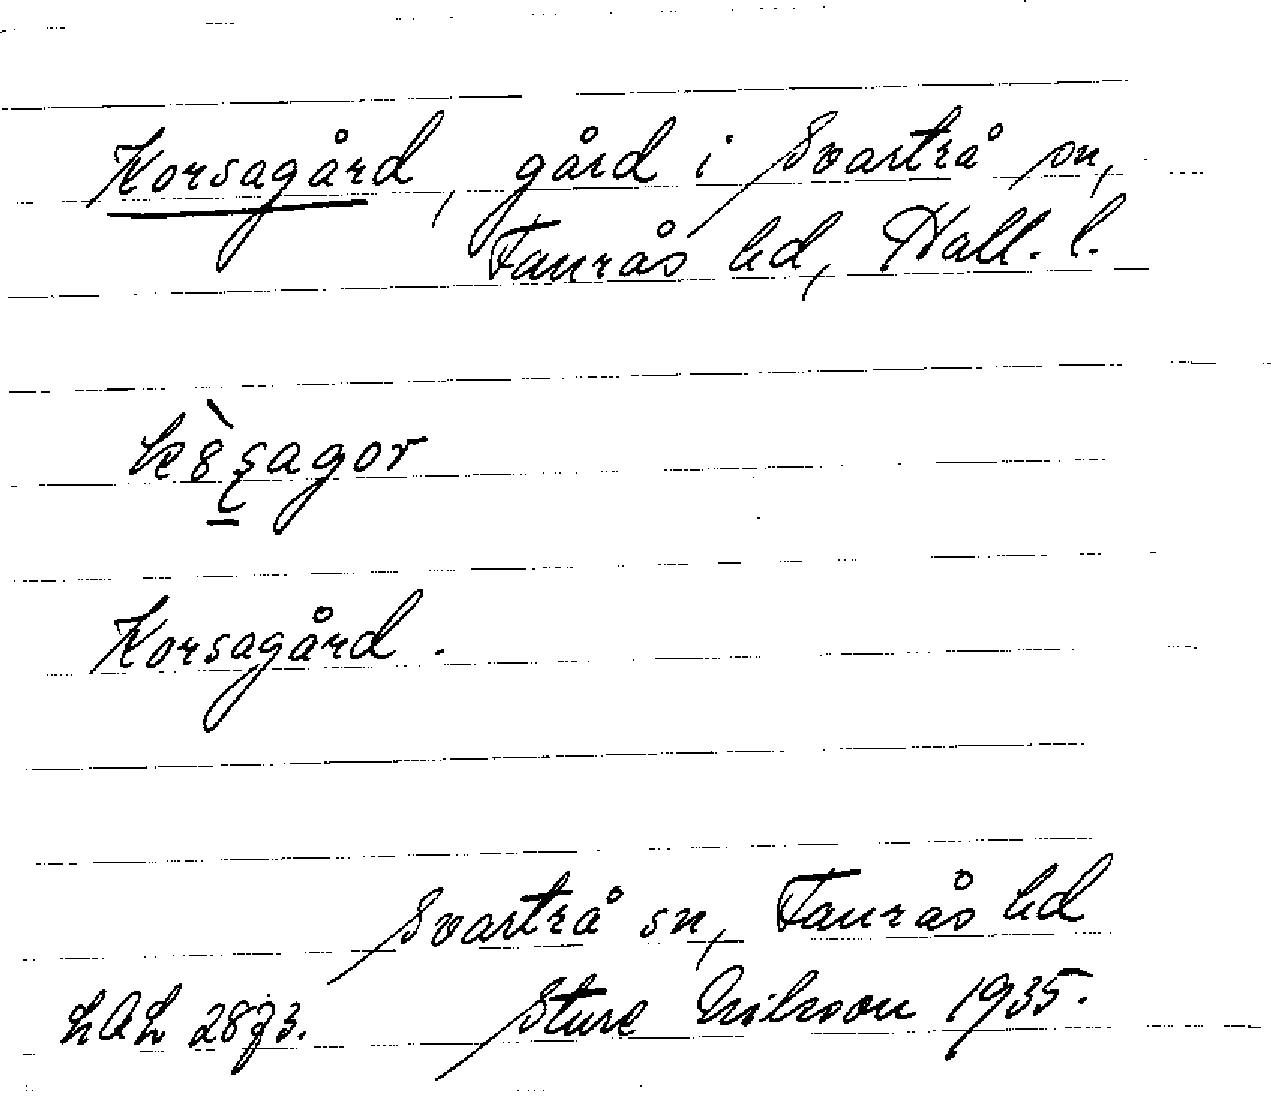 Korsagård, gård i Svartrå sn,
Faurås hd, Hall. l.
Korsagård.
Svartrå sn, Faurås hd
LAL 2873. Sture Nilsson 1935.